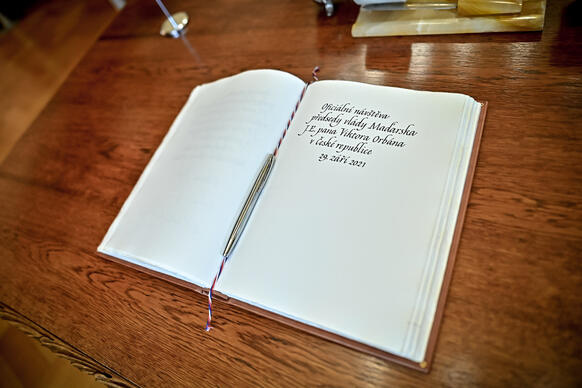 Oficiální návštěva
předsedy vlády Maďarska
J. E. pana Viktora Orbána
v české republice
29. září 2021